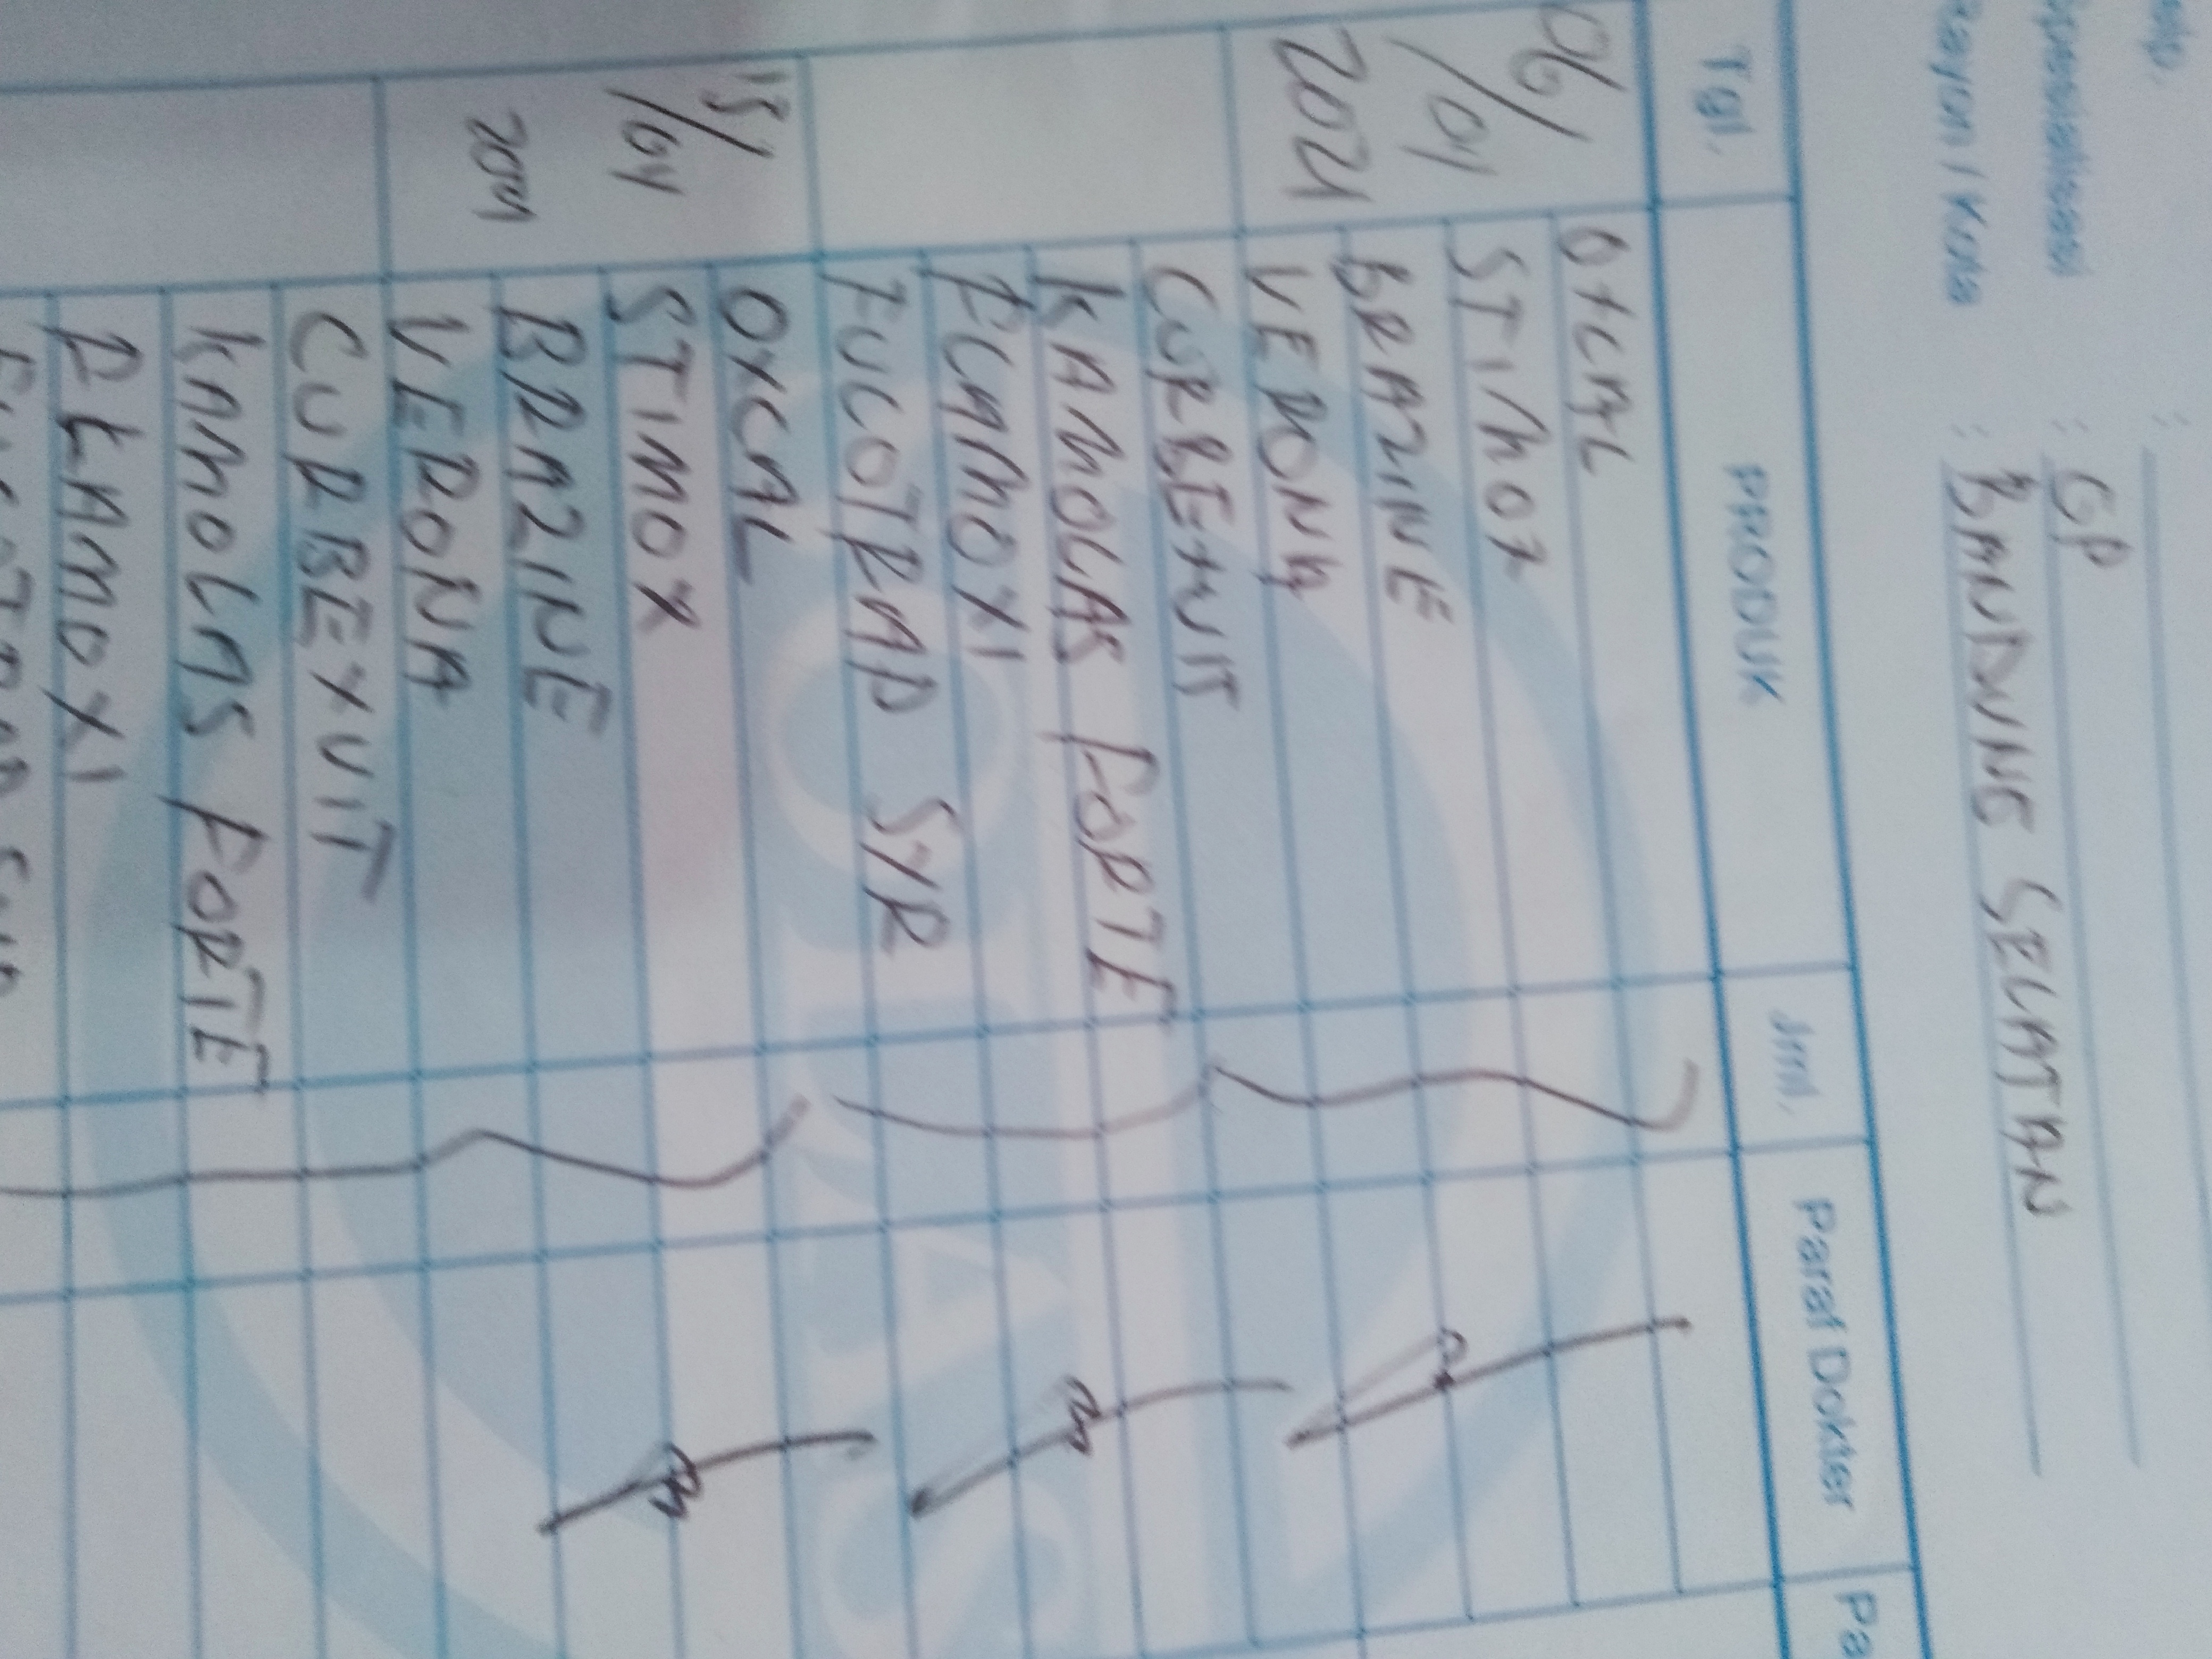 Spesialisasi : GP
Rayon / Kota : BANDUNG SELATAN
Tgl. PRODUK Jml. Paraf Dokter Pa
06/ OXCAL
/04 STIMOX
2021 BRAZINE
VERONA
CURBEXVIT
KAMOLAS FORTE
ECAMOXI
FUCOTRAD SYR
15/ OXCAL
/04 STIMOX
2021 BRAZINE
VERONA
CURBEXVIT
KAMOLAS FORTE